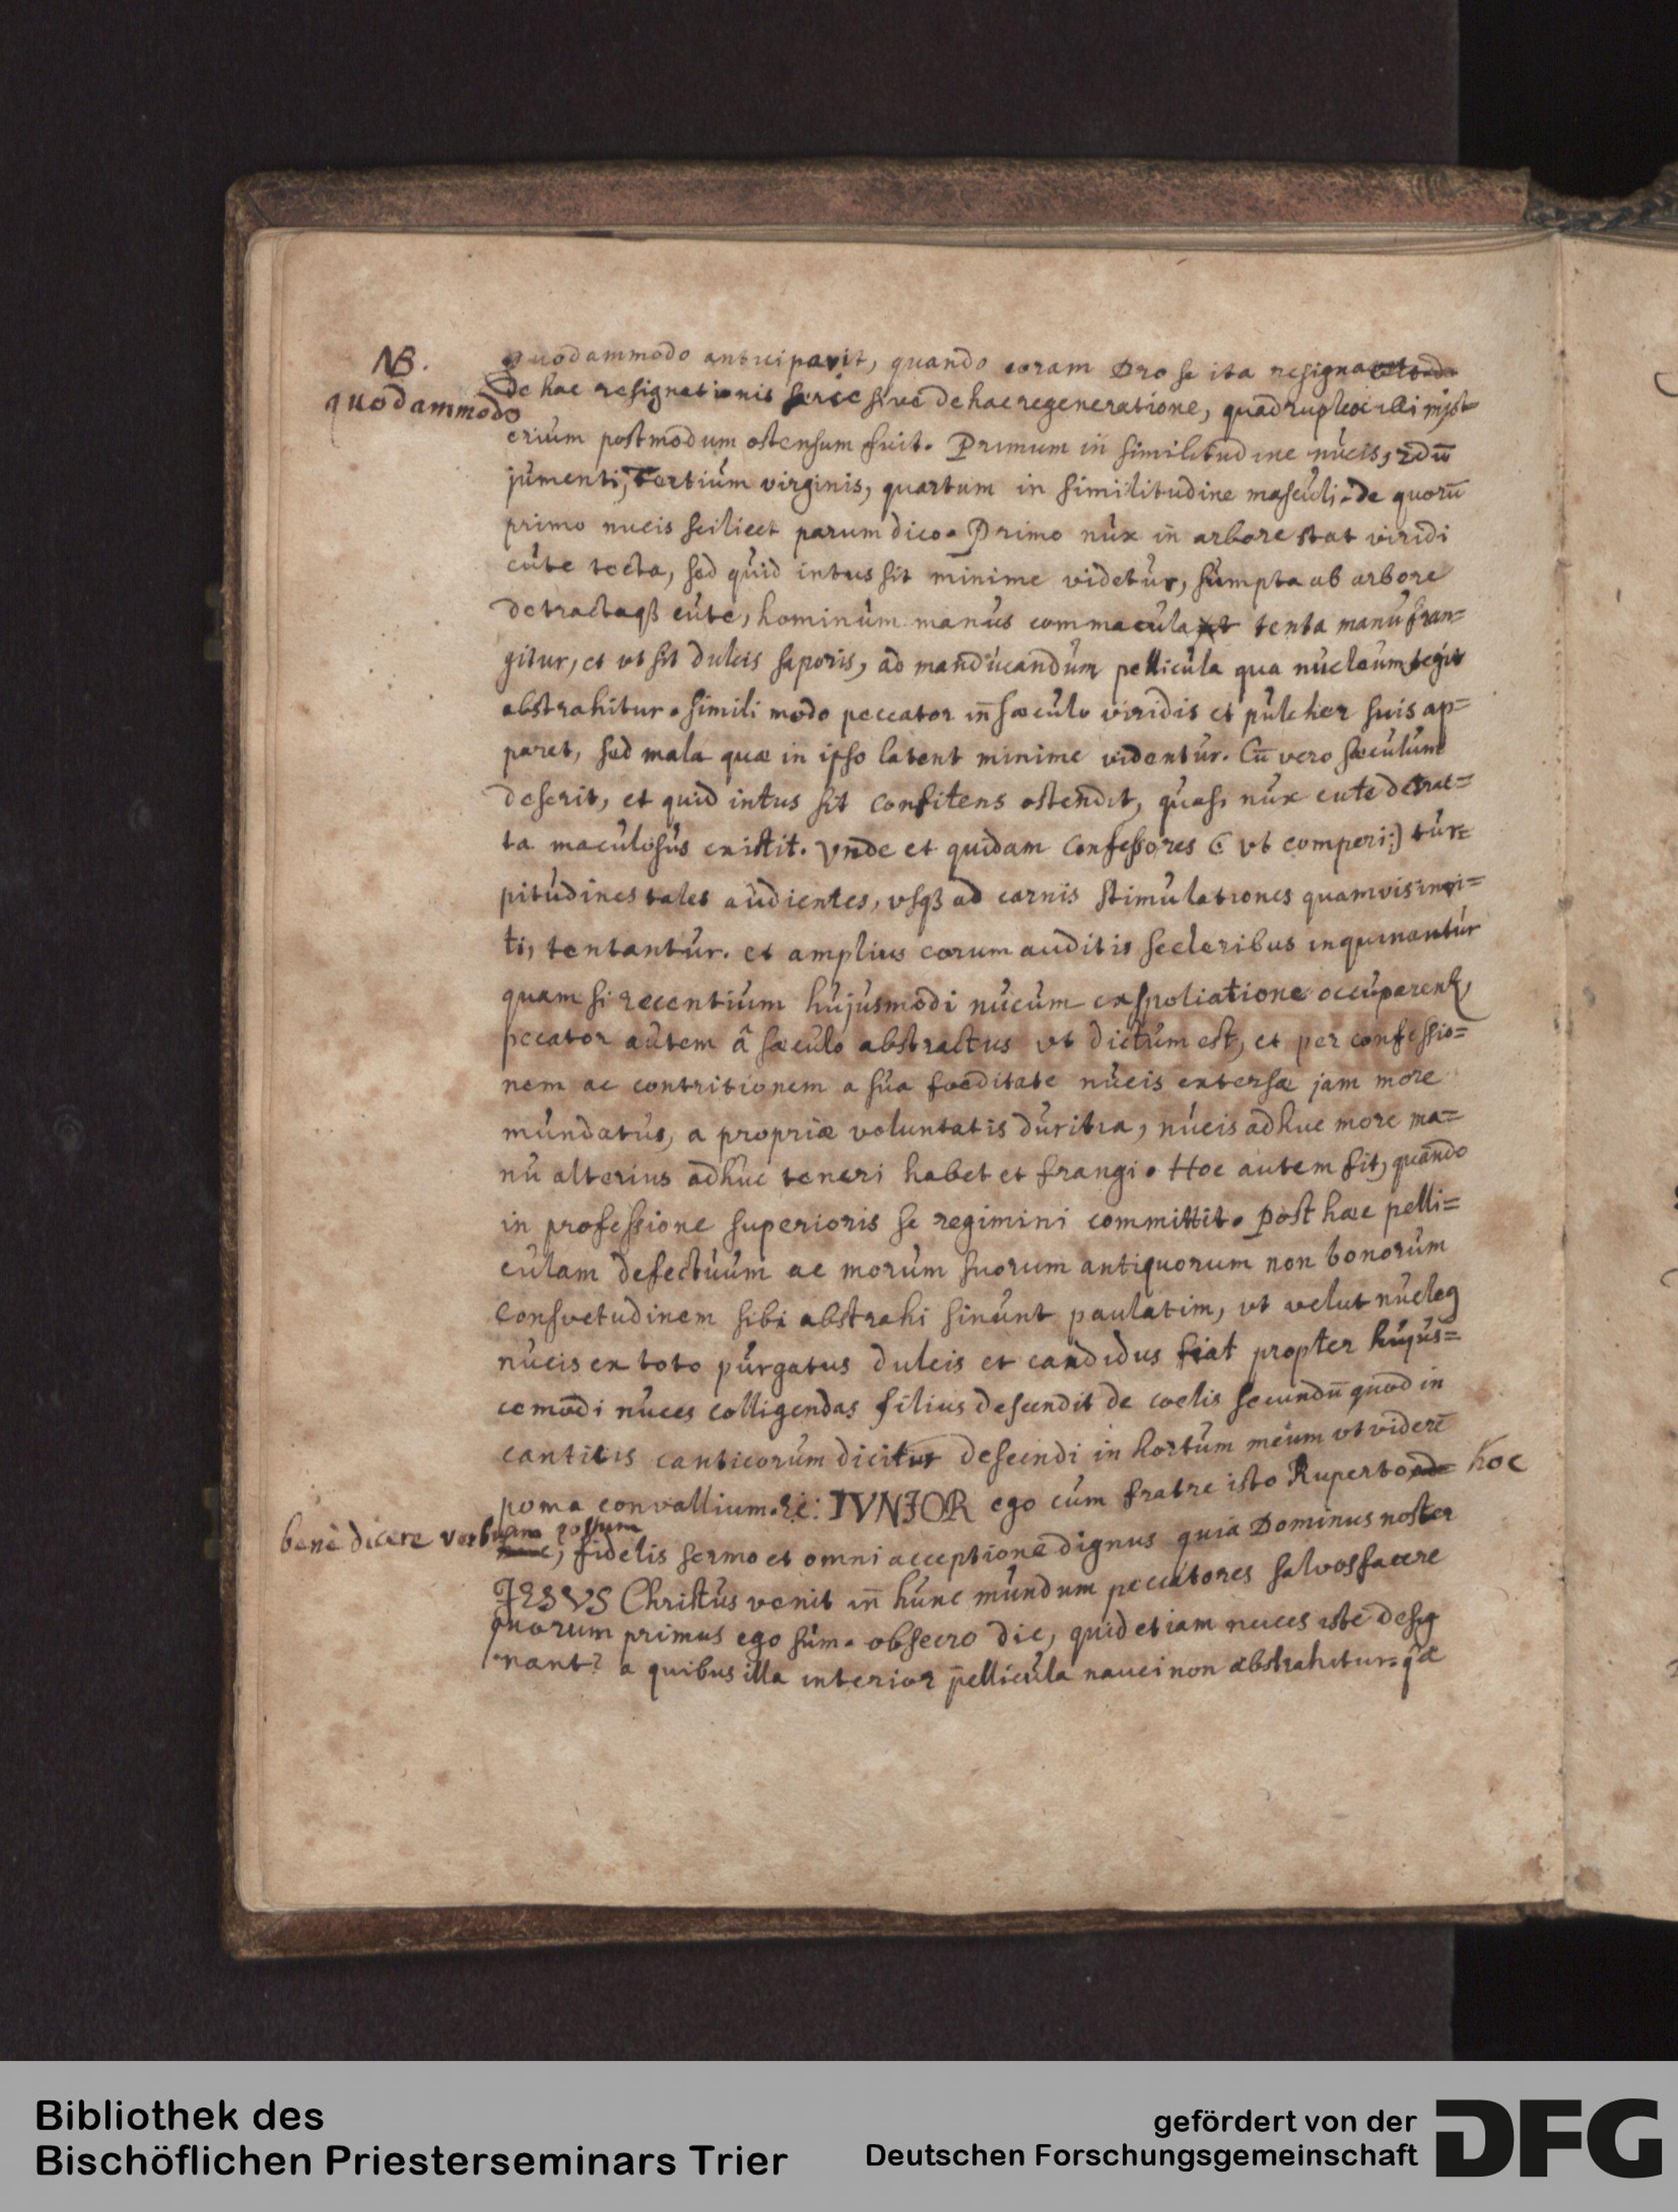 NB.
quodammodo
quodammodo anticipavit, quando coram Deo se ita resigna
De hac resignationis serie sive de hac regeneratione, quadruplex illi myst=
erium postmodum ostensum fuit. Primum in similitudine nucis, 2dū
jumenti, Tertium virginis, quartum in similitudine masculi. De quorū
primo nucis scilicet parum dico. Primo nux in arbore stat viridi
cute tecta, sed quid intus sit minime videtur, sumpta ab arbore
detractaqʒ cute, hominum manus commacula tenta manu fran=
gitur, et ut sit dulcis saporis, ad manducandum pellicula qua nucleum tegit
abstrahitur. simili modo peccator in sæculo viridis et pulcher suis ap=
paret, sed mala quæ in ipso latent minime videntur. Cū vero sæculum
deserit, et quid intus sit confitens ostendit, quasi nux cute detrac=
ta maculosus existit. Vnde et quidam Confessores (: vt comperi:) tur=
pitudines tales audientes, vsqʒ ad carnis stimulationes quamvis invi=
ti, tentantur. et amplius eorum auditis sceleribus inquinantur
quam si recentium hujusmodi nucum exspoliatione occuparent,
peccator autem â sæculo abstractus vt dictum est, et per confessio=
nem ac contritionem a sua foeditate nucis extersæ jam more
mundatus, a propriæ voluntatis duritia, nucis adhuc more ma=
nu alterius adhuc teneri habet et frangi. Hoc autem fit, quando
in professione superioris se regimini committit. Post hæc pelli=
culam defectuum ac morum suorum antiquorum non bonorum
Consvetudinem sibi abstrahi sinunt paulatim, vt velut nucleq
nucis ex toto purgatus dulcis et candidus fiat propter hujus=
cemodi nuces colligendas filius descendit de coelis secundū quod in
canticis canticorum dicitur descendi in hortum meum vt viderē
poma convallium. &c: IVNIOR ego cum fratre isto Ruperto hoc
bene dicere verbum possum
fidelis sermo et omni acceptione dignus quia Dominus noster
JESVS Christus venit in hunc mundum peccatores salvos facere
quorum primus ego sum. obsecro dic, quid etiam nuces iste desig
nant? a quibus illa interior pellicula nauci non abstrahitur. q̃
Bibliothek des
Bischöflichen Priesterseminars Trier
gefördert von der
Deutschen Forschungsgemeinschaft
DFG